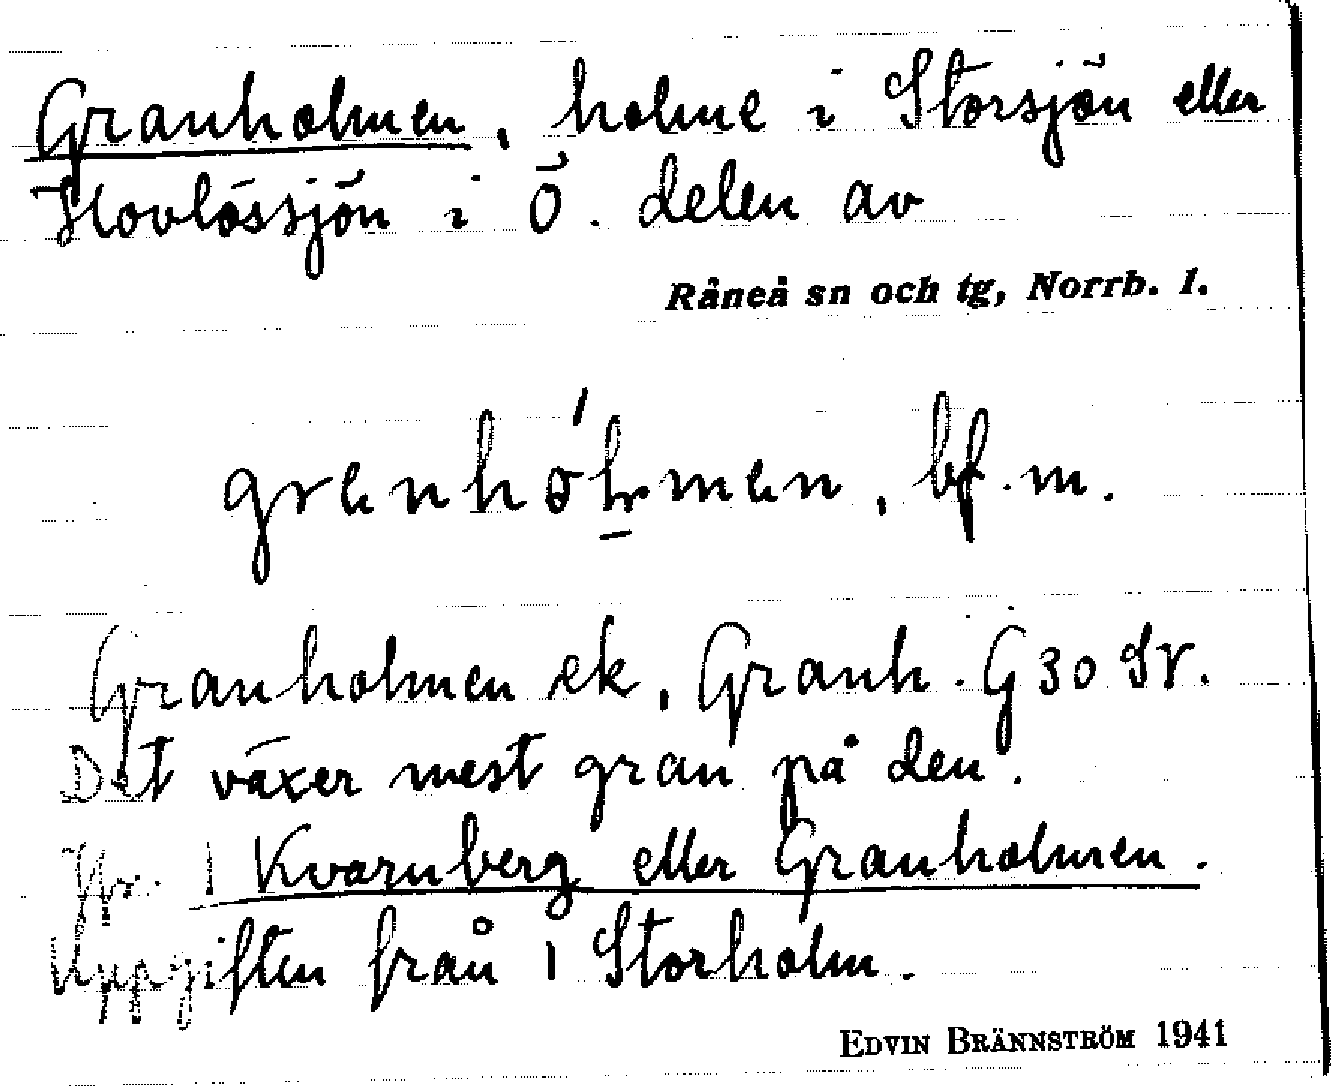 Granholmen, holme i Storsjön eller
Hovlössjön i Ö. delen av
Råneå sn och tg, Norrb. l.
bf. m.
Granholmen ek, Granh. G 30 SV.
Det växer mest gran på den.
Jfr. 1 Kvarnberg eller Granholmen.
Uppgiften från 1 Storholm.
EDVIN BRÄNNSTRÖM 1941